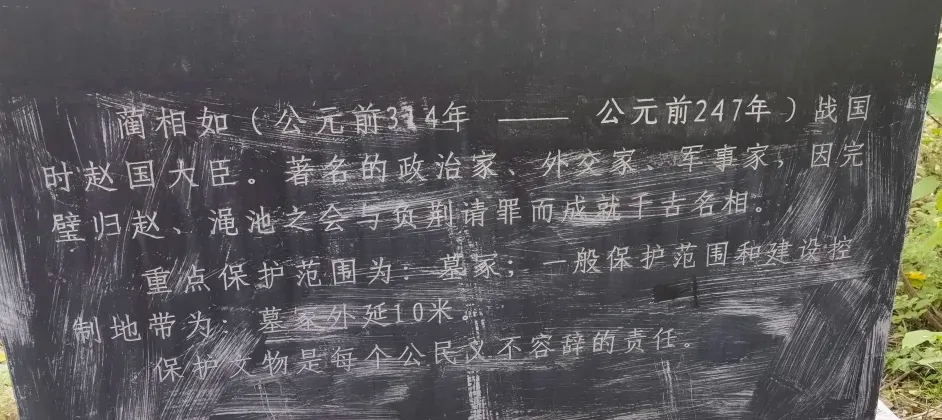 蔺相如（公元前314年 —— 公元前247年）战国
时赵国大臣。著名的政治家、外交家、军事家，因完
璧归赵、渑池之会与负荆请罪而成就千古名相。
重点保护范围为：墓冢；一般保护范围和建设控
制地带为：墓冢外延10米。
保护文物是每个公民义不容辞的责任。